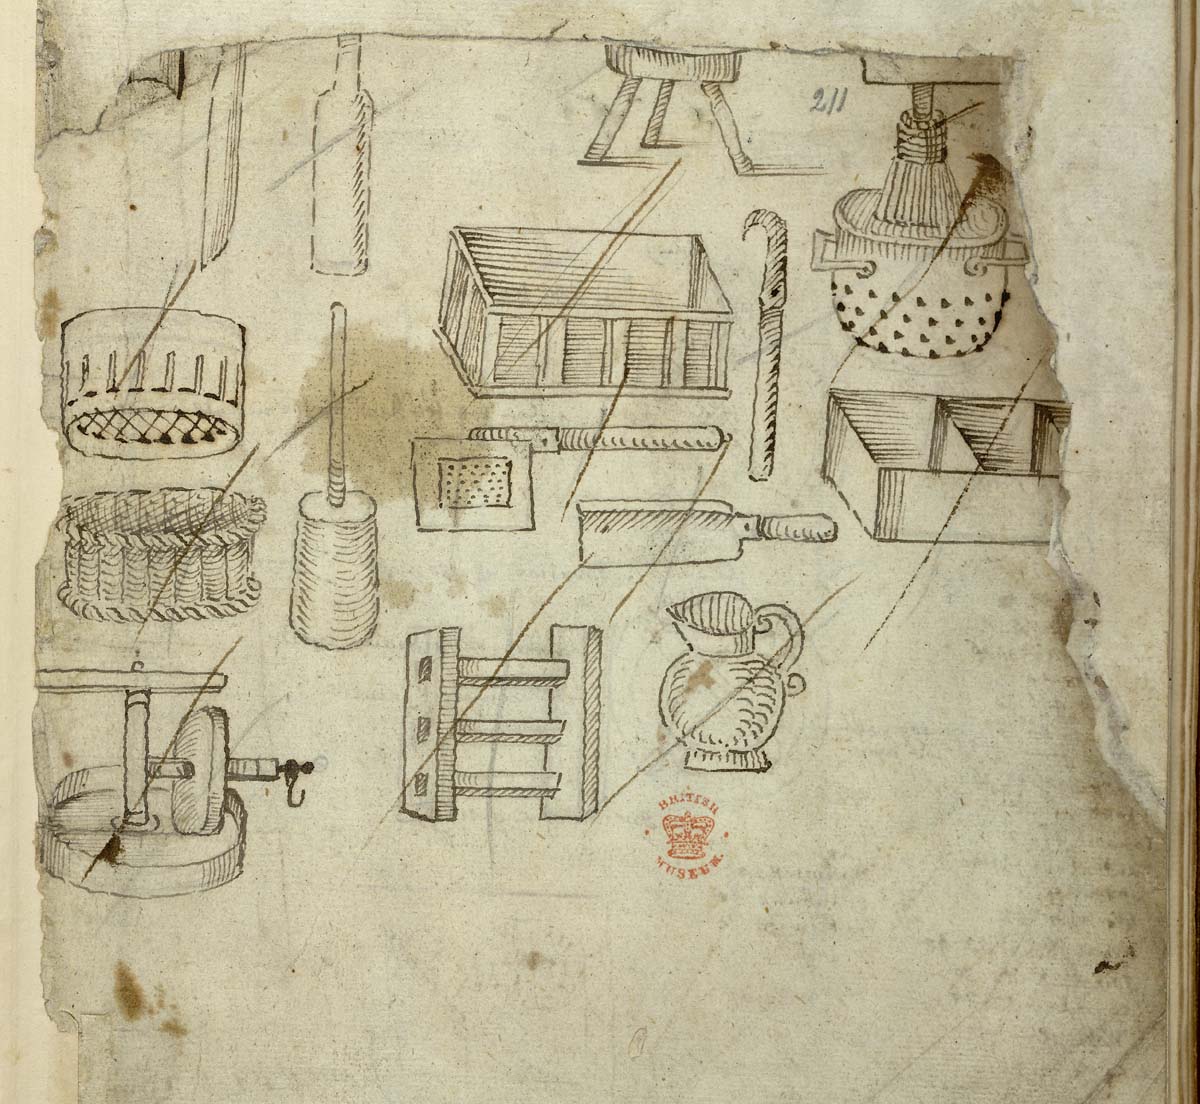 211
BRITISH
MUSEUM